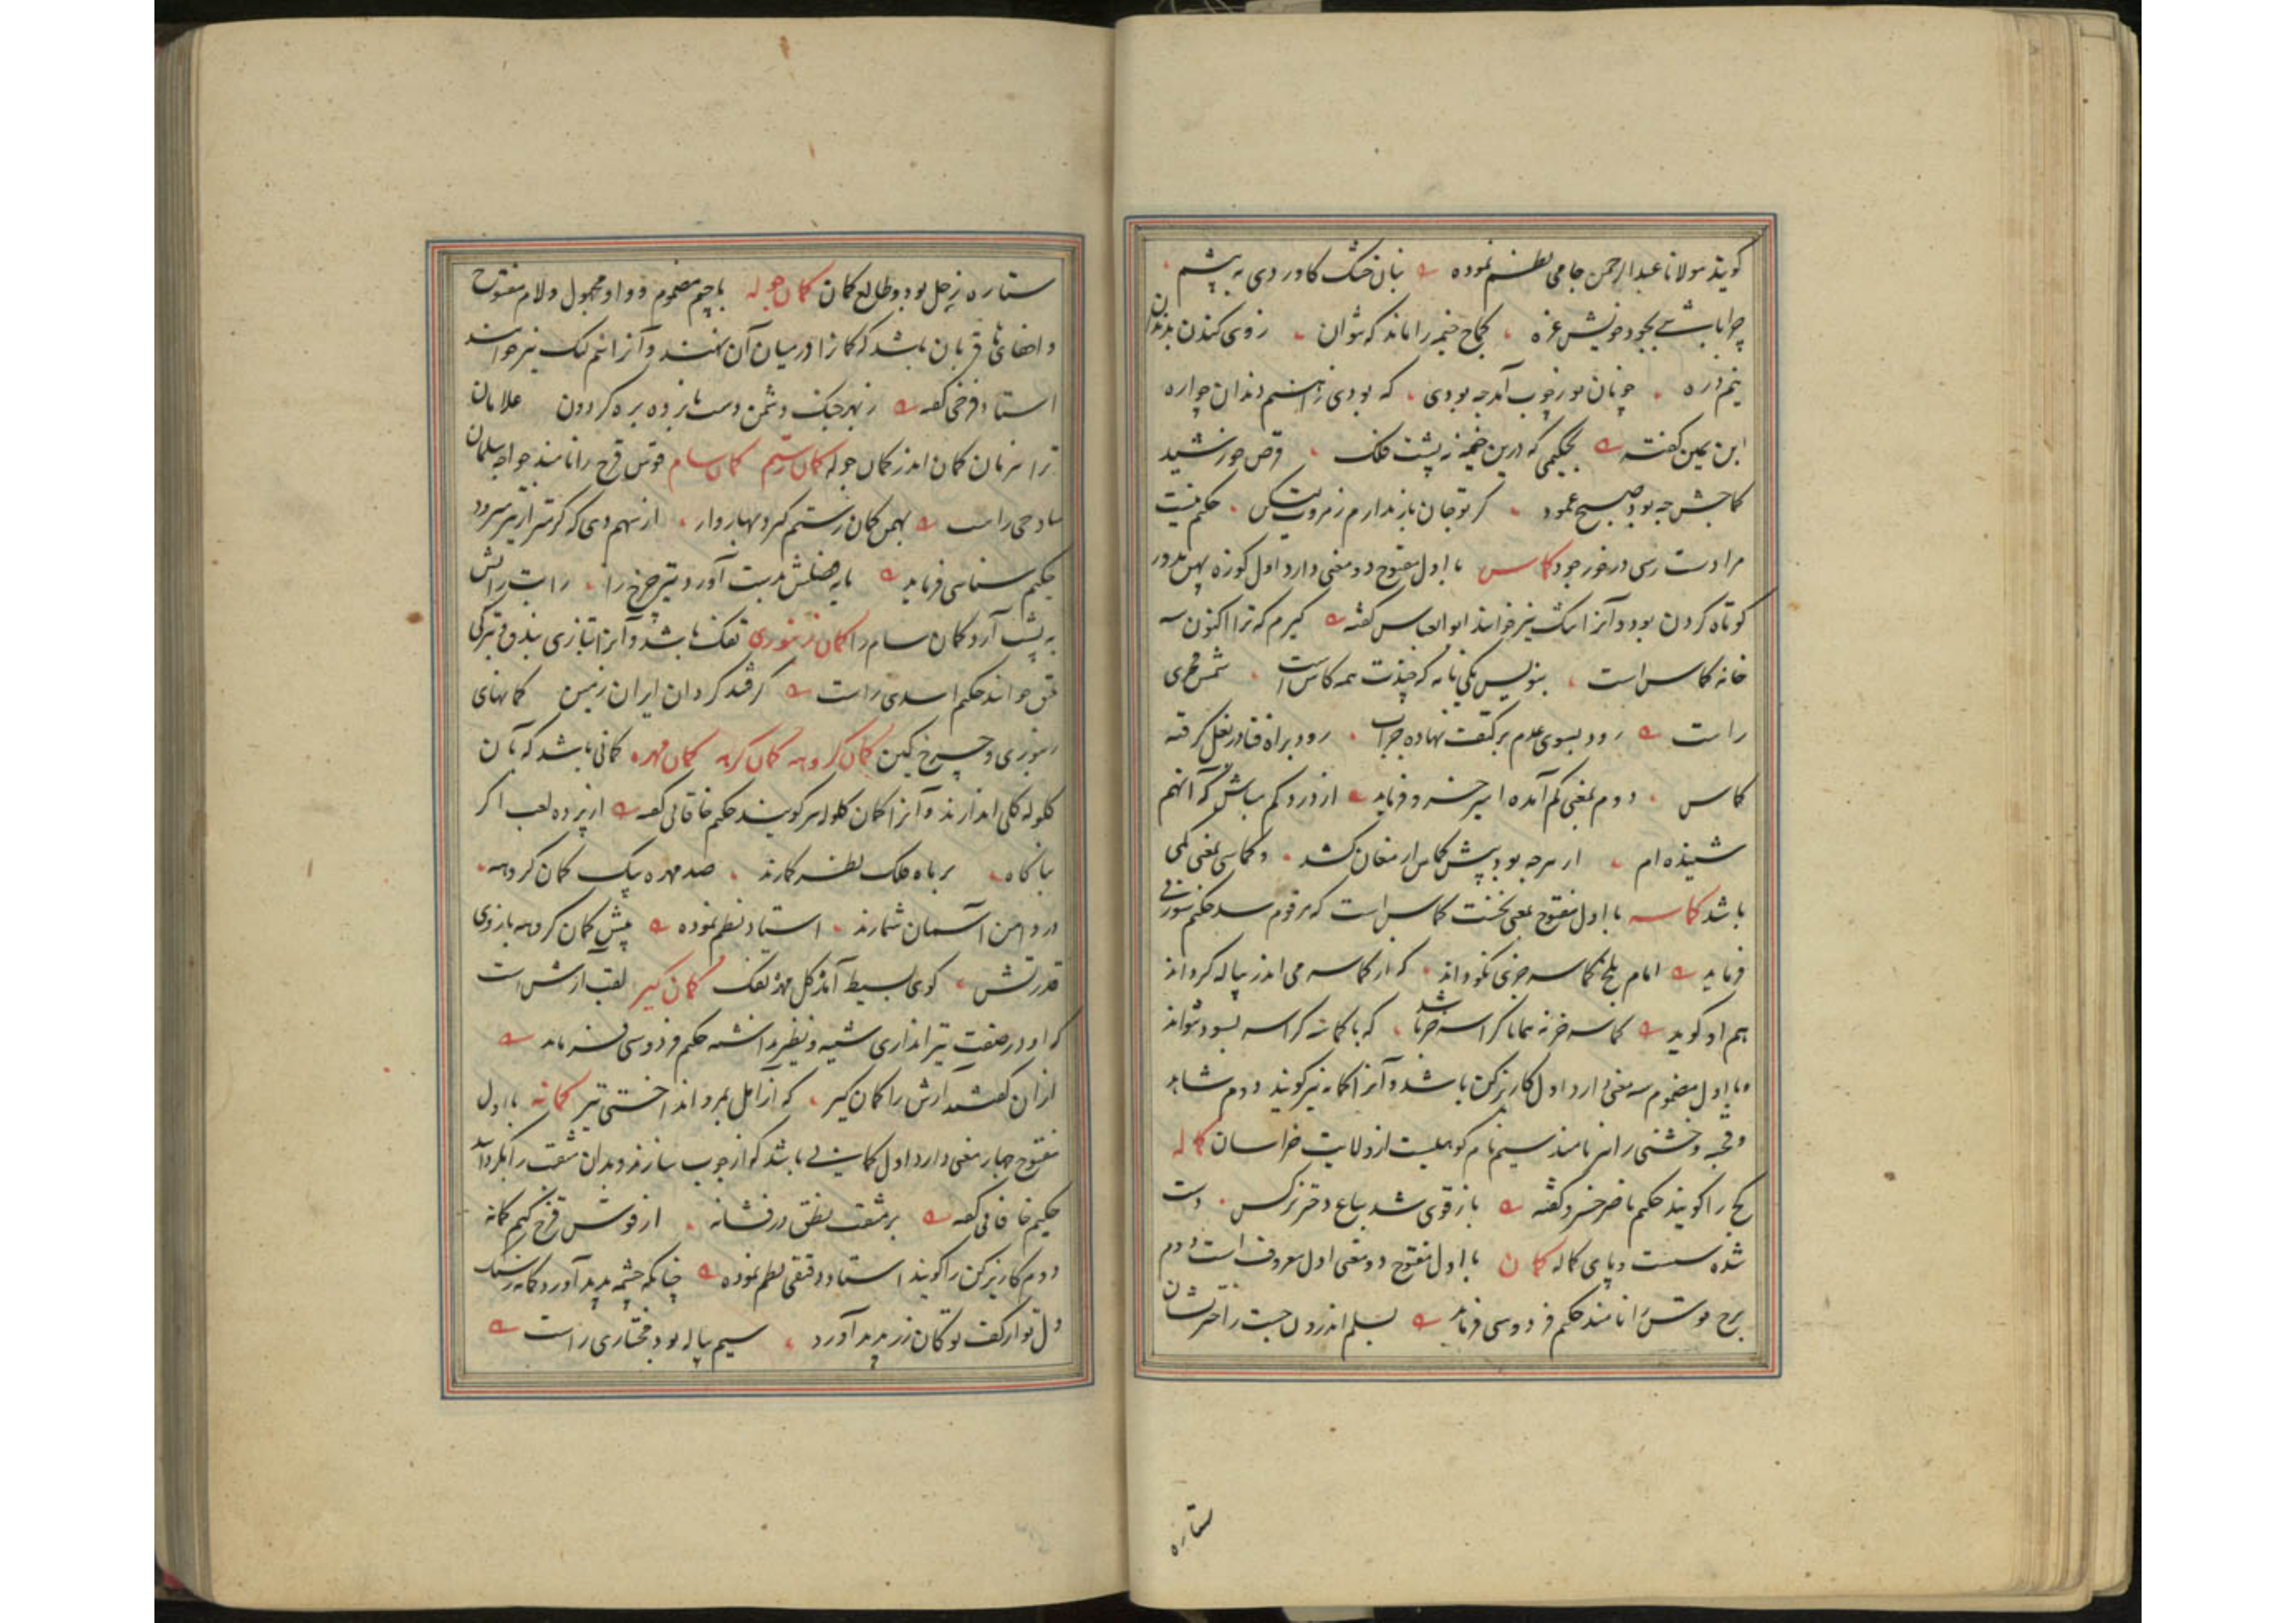 گویند مولانا عبدالرحمن جامی نظم نموده نبان خشک کاوردی به پشم
چرا باشی بجود خویش غره کماج خیمه را ماند که نتوان ز وی کندن بدندان
نیم ذره چو نان بورخوب آمد چه بودی که بودی زاهنم دندان چو اره
ابن یمین گفته بحکیمی که درین خیمه زپشت فلک قرص خورشید
کماجش چه بود صبح عمود گر تو جان باز ندارم ز مروت لیکن حکم نیست
مرا دست رسی درخور جود کماس با اول مفتوح دو معنی دارد اول کوزه پهن مدور
کوتاه گردن بود و آنرا تنک نیز خوانند ابوالعباس گفته گیرم که ترا اکنون سه
خانه کماس است بنویس یکی نامه که چندت همه کاس است شمس فخری
راست رود بسوی عدم بر کتفت نهاده جراب رود براه فنا در بغل گرفته
کماس دوم بمعنی کم آمده امیر خسرو فرماید از درد کم مباش که آنهم
شنیده ام از هر چه بود پیش کماس ارمغان کشد و کماسی بمعنی کمی
باشد کماسه با اول مفتوح بمعنی نخست کماس است که مرقوم شد حکیم سوزنی
فرماید امام بلخ کماسه جزی نکو داند که از کماسه می اندر پیاله گرداند
هم او گوید کماسه خرنه همانا کراسه خر باشد که با کمانه کراسه بسود نتواند
و با اول مضموم سه معنی دارد اول کاریزکن باشد و آنرا کمانه نیز گویند دوم شاهد
و قحبه و خشنی را نیز نامند سیم نام کوهیست از ولایت خراسان کماله
کج را گویند حکیم ناصر خسرو گفته باز قوی شد بباغ دختر نرگس دست
شده سست و پای کماله کمان با اول مفتوح دو معنی اول معروف است دوم
برج قوس را نامند حکیم فردوسی فرماید بسلم اندرون جست ز اخترنشان
ستاره
ستاره زحل بود و طالع کمان کمان جوله با جیم مضموم و واو مجهول و لام مفتوح
و اخفای ها قربان باشد که کمانرا در میان آن نهند و آنرا نیم لنک نیز خوانند
استاد فرخی گفته ز بهر جنک دشمن دست نابرده بزه کردون غلامان
ترا هر زمان کمان اندر کمان جوله کمان رستم کمان سام قوس قزح را نامند خواجه سلمان
ساوجی راست بهمن کمان رستم گیرد بهار وار از سهم دی که گر تیر از تیر سرود
حکیم سنائی فرماید پایه فضلش بدست آورد تیر چرخ را رایت رایش
به پشت آرد کمان سام را کمان زنبوری تفنک باشد و آنرا بتازی بندق و بترکی
ملتق خوانند حکیم اسدی راست گرفتند گردان ایران زمین کمانهای
زنبوری و چرخ کین کمان گروهه کمان گرهه کمان مهره کمانی باشد که بآن
گلوله گلی اندازند و آنرا کمان گلوله نیز گویند حکیم خاقانی گفته از پرده لعب اگر
بناگاه برماه فلک نظر گمارند صد مهره بیک کمان گروهه
در دامن آسمان شمارند استاد نظم نموده پیش کمان گروهه بازوی
قدرتش گوی بسیط آمد گل مهره تفنک کمان گیر لقب آرش است
که او در صنعت تیراندازی شبیه و نظیر نداشته حکیم فردوسی فرماید
از آن گفتند آرش را کمان گیر که از آمل بمرو انداختی تیر کمانه با اول
مفتوح چهار معنی دارد اول کمانی باشد که از چوب سازند و بدان مثقب را بگردانند
حکیم خاقانی گفته بر مثقب نطق درفشانه از قوس قزح کنیم کمانه
دوم کاریزکن را گویند استاد دقیقی نظم نموده چنانکه چشمه پدید آورد کمانه ز سنگ
دل تو از کف تو کان زر پدید آورد سیم پیاله بود مختاری راست